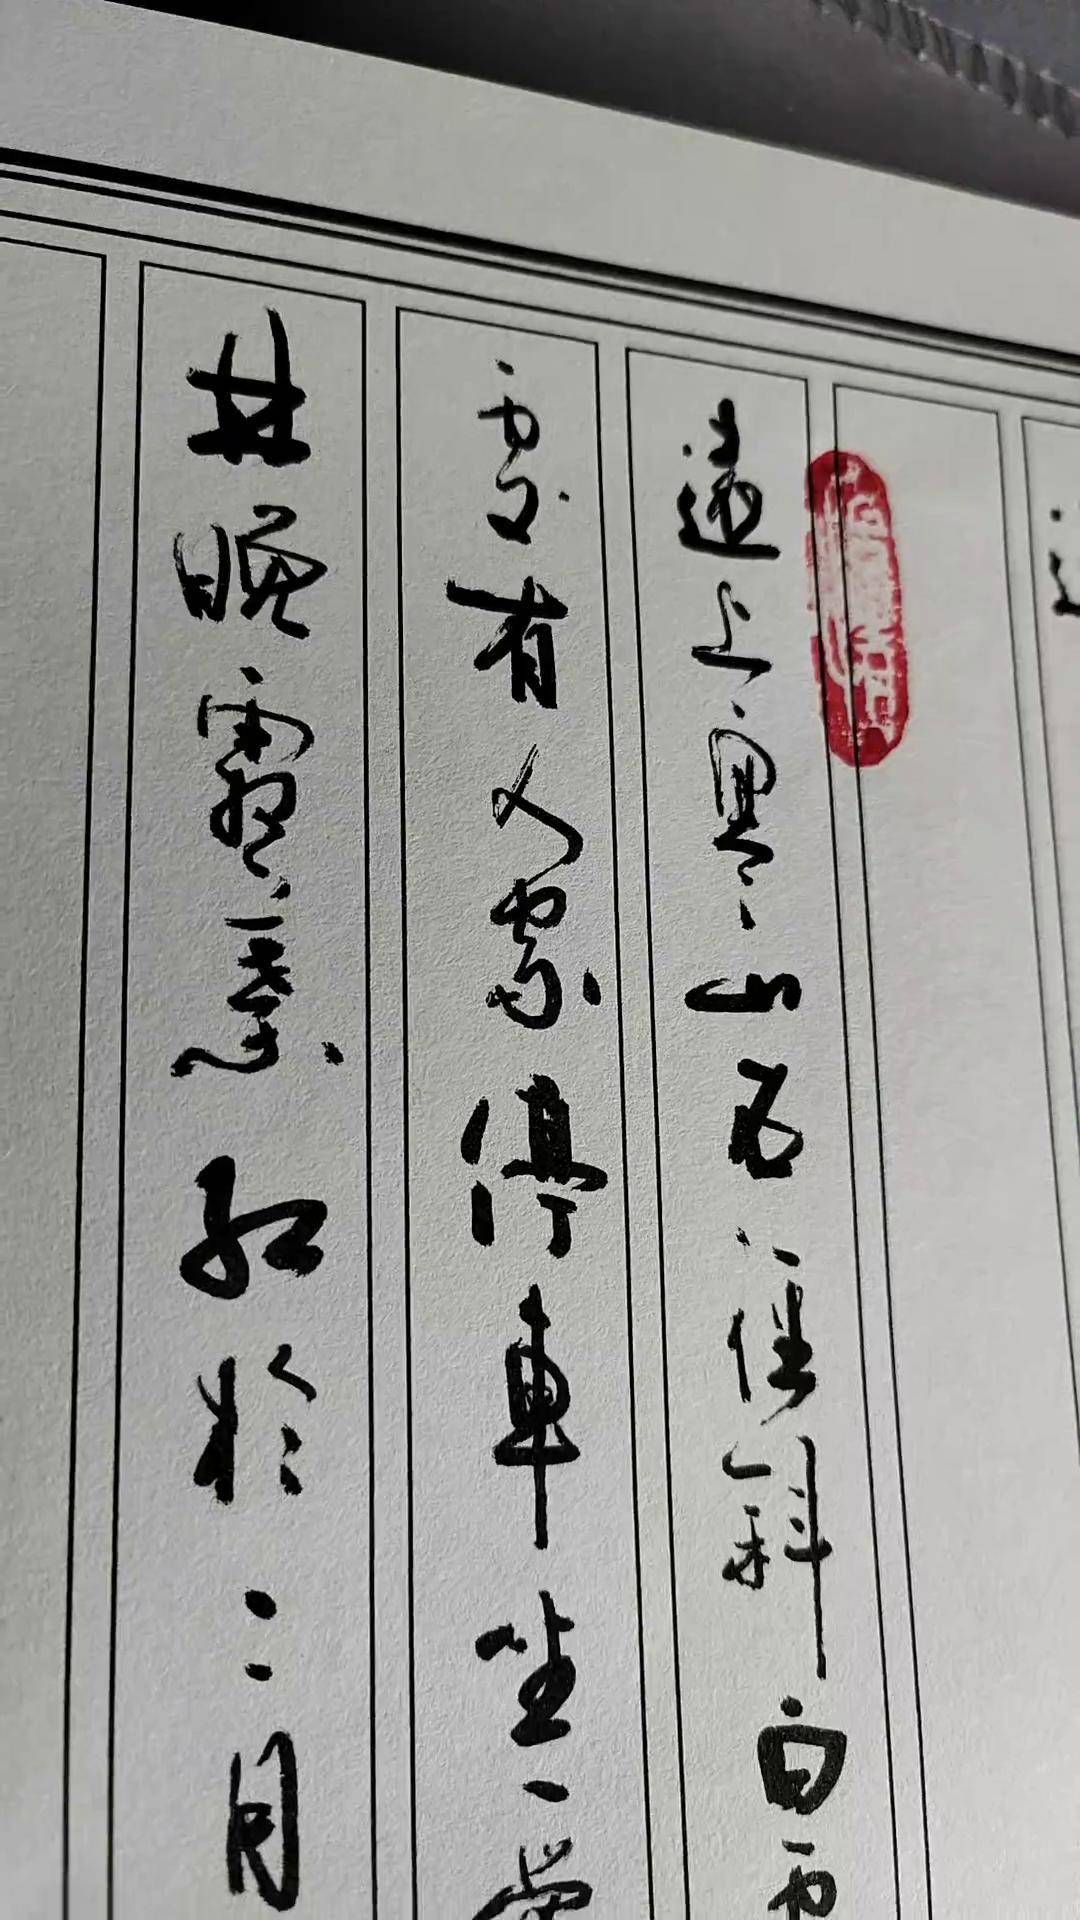 遠上寒山石徑斜白雲
處有人家停車坐愛
林晚霜葉紅於二月